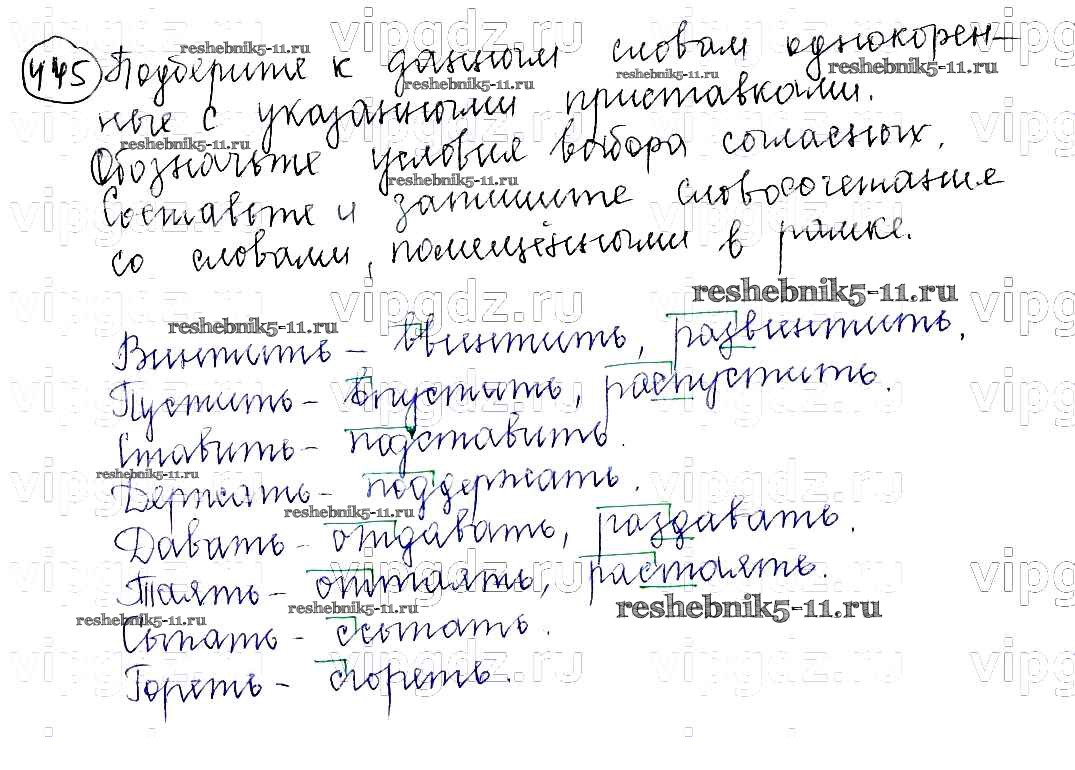 445 Подберите к данным словам однокорен-
ные с указанными приставками.
Обозначьте условия выбора согласных.
Составьте и запишите словосочетание
со словами, помещёнными в рамке.
Винтить – ввинтить, развинтить,
Пустить – впустить, распустить.
Ставить – подставить.
Держать – поддержать.
Давать – отдавать, раздавать.
Таять – оттаять, растаять.
Сыпать – ссыпать.
Гореть – сгореть.
reshebnik5-11.ru
vipgdz.ru